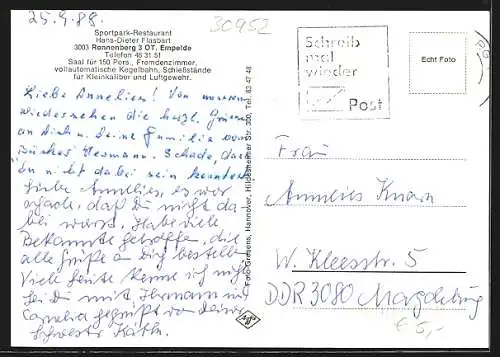 25.9.88.
30952
Sportpark-Restaurant
Hans-Dieter Flasbart
3003 Ronnenberg 3 OT. Empelde
Telefon 46 31 51
Saal für 150 Pers., Fremdenzimmer,
vollautomatische Kegelbahn, Schießstände
für Kleinkaliber und Luftgewehr.
Liebe Annelies! Von unserem
Wiedersehen die herzl. Grüsse
an Dich u. Deine Familie von
Hermann. Schade, dass
Du nicht dabei sein konntest
Liebe Annelies, es war
schade, daß Du nicht da
bei warst. Habe viele
Bekannte getroffen, die
alle grüße an Dich bestellen
Viel Leute kenne ich nicht
Sei Du mit Hermann und
Cornelia gegrüßt von Deiner
Schwester Käth.
Foto Gresens, Hannover, Hildesheimer Str. 350, Tel. 83 47 48
Agfa
Schreib
mal
wieder
Post
Echt Foto
Frau
Annelies Knorn
W. Kleesstr. 5
DDR 3080 Magdeburg
€ 5,-